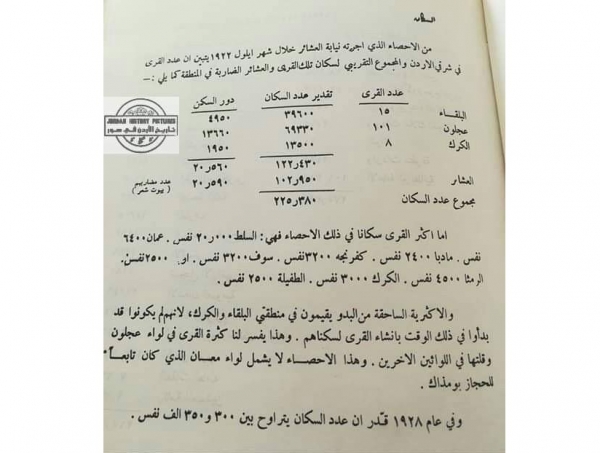 السكان
من الاحصاء الذي اجرته نيابة العشائر خلال شهر ايلول ١٩٢٢ يتبين ان عدد القرى
في شرقي الاردن والمجموع التقريبي لسكان تلك القرى والعشائر الضاربة في المنطقة كما يلي : —
عدد القرى تقدير عدد السكان دور السكن
البلقاء ١٥ ٣٩٦٠٠ ٤٩٥٠
عجلون ١٠١ ٦٩٣٣٠ ١٣٦٦٠
الكرك ٨ ١٣٥٠٠ ١٩٥٠
١٢٢ر٤٣٠ ٢٠ر٥٦٠
العشائر ١٠٢ر٩٥٠ ٢٠ر٥٩٠ عدد مضاربهم
( بيوت شعر )
مجموع عدد السكان ٢٢٥ر٣٨٠
اما اكثر القرى سكانا في ذلك الاحصاء فهي : السلط ٢٠ر٠٠٠ نفس . عمان ٦٤٠٠
نفس . مادبا ٢٤٠٠ نفس . كفرنجه ٣٢٠٠ نفس . سوف ٣٢٠٠ نفس . ٢٥٠٠ نفس .
الرمثا ٤٥٠٠ نفس . الكرك ٣٠٠٠ نفس . الطفيلة ٢٥٠٠ نفس .
والاكثرية الساحقة من البدو يقيمون في منطقتي البلقاء والكرك، لانهم لم يكونوا قد
بدأوا في ذلك الوقت بانشاء القرى لسكناهم . وهذا يفسر لنا كثرة القرى في لواء عجلون
وقلتها في اللوائين الاخرين . وهذا الاحصاء لا يشمل لواء معان الذي كان تابعاً
للحجاز يومذاك .
وفي عام ١٩٢٨ قدر ان عدد السكان يتراوح بين ٣٠٠ و ٣٥٠ الف نفس .
JORDAN HISTORY PICTURES
تاريخ الأردن في صور